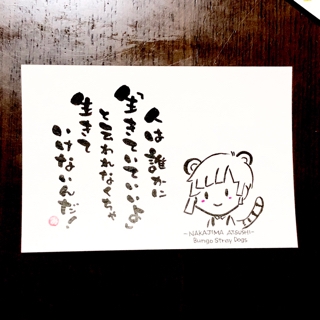 人は誰かに
「生きていていいよ」
と云われなくちゃ
生きて
いけないんだ!
~NAKAJIMA ATSUSHI~
Bungo Stray Dogs